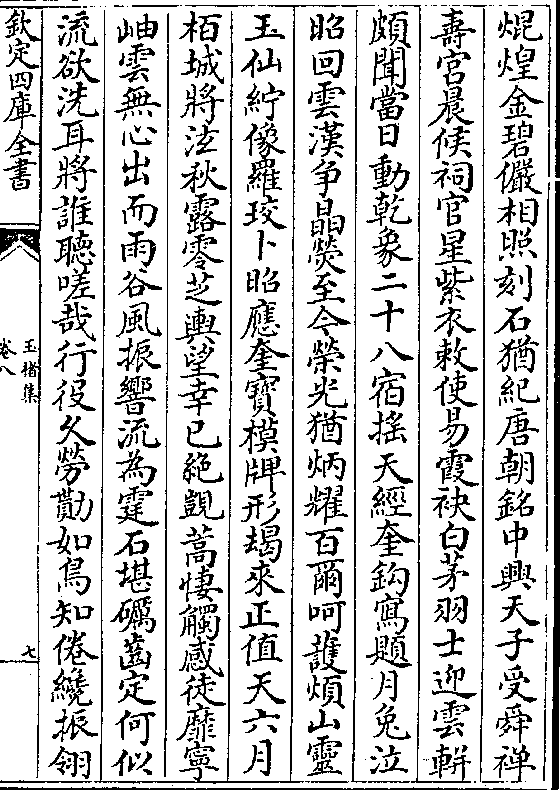 焜煌金碧儼相照刻石猶紀唐朝銘中興天子受舜禅
壽宮晨候祠官星紫衣敕使易霞袂白茅羽士迎雲軿
頗聞當日動乾象二十八宿搖天經奎鈎寫題月兔泣
昭回雲漢争晶熒至今榮光猶炳耀百爾呵護煩山靈
玉仙紵像羅珓卜昭應奎寶模牌形朅來正值天六月
栢城將泫秋露零芝輿望幸已絶覬蒿悽觸感徒靡寧
岫雲無心出而雨谷風振響流為霆石堪礪齒定何似
流欲洗耳將誰聽嗟哉行役久勞勩如鳥知倦纔振翎
欽定四庫全書
玉楮集
卷八
七